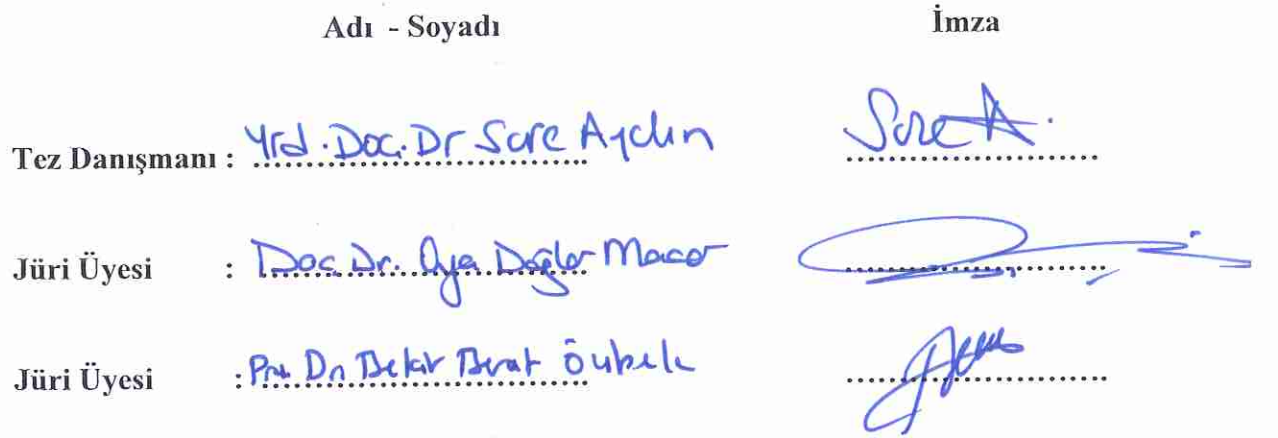 Adı - Soyadı İmza
Tez Danışmanı : Yrd. Doç. Dr Sare Aydın Sare A.
Jüri Üyesi : Doç. Dr. Oya Dağlar Macar
Jüri Üyesi : Dr Bekir Berat